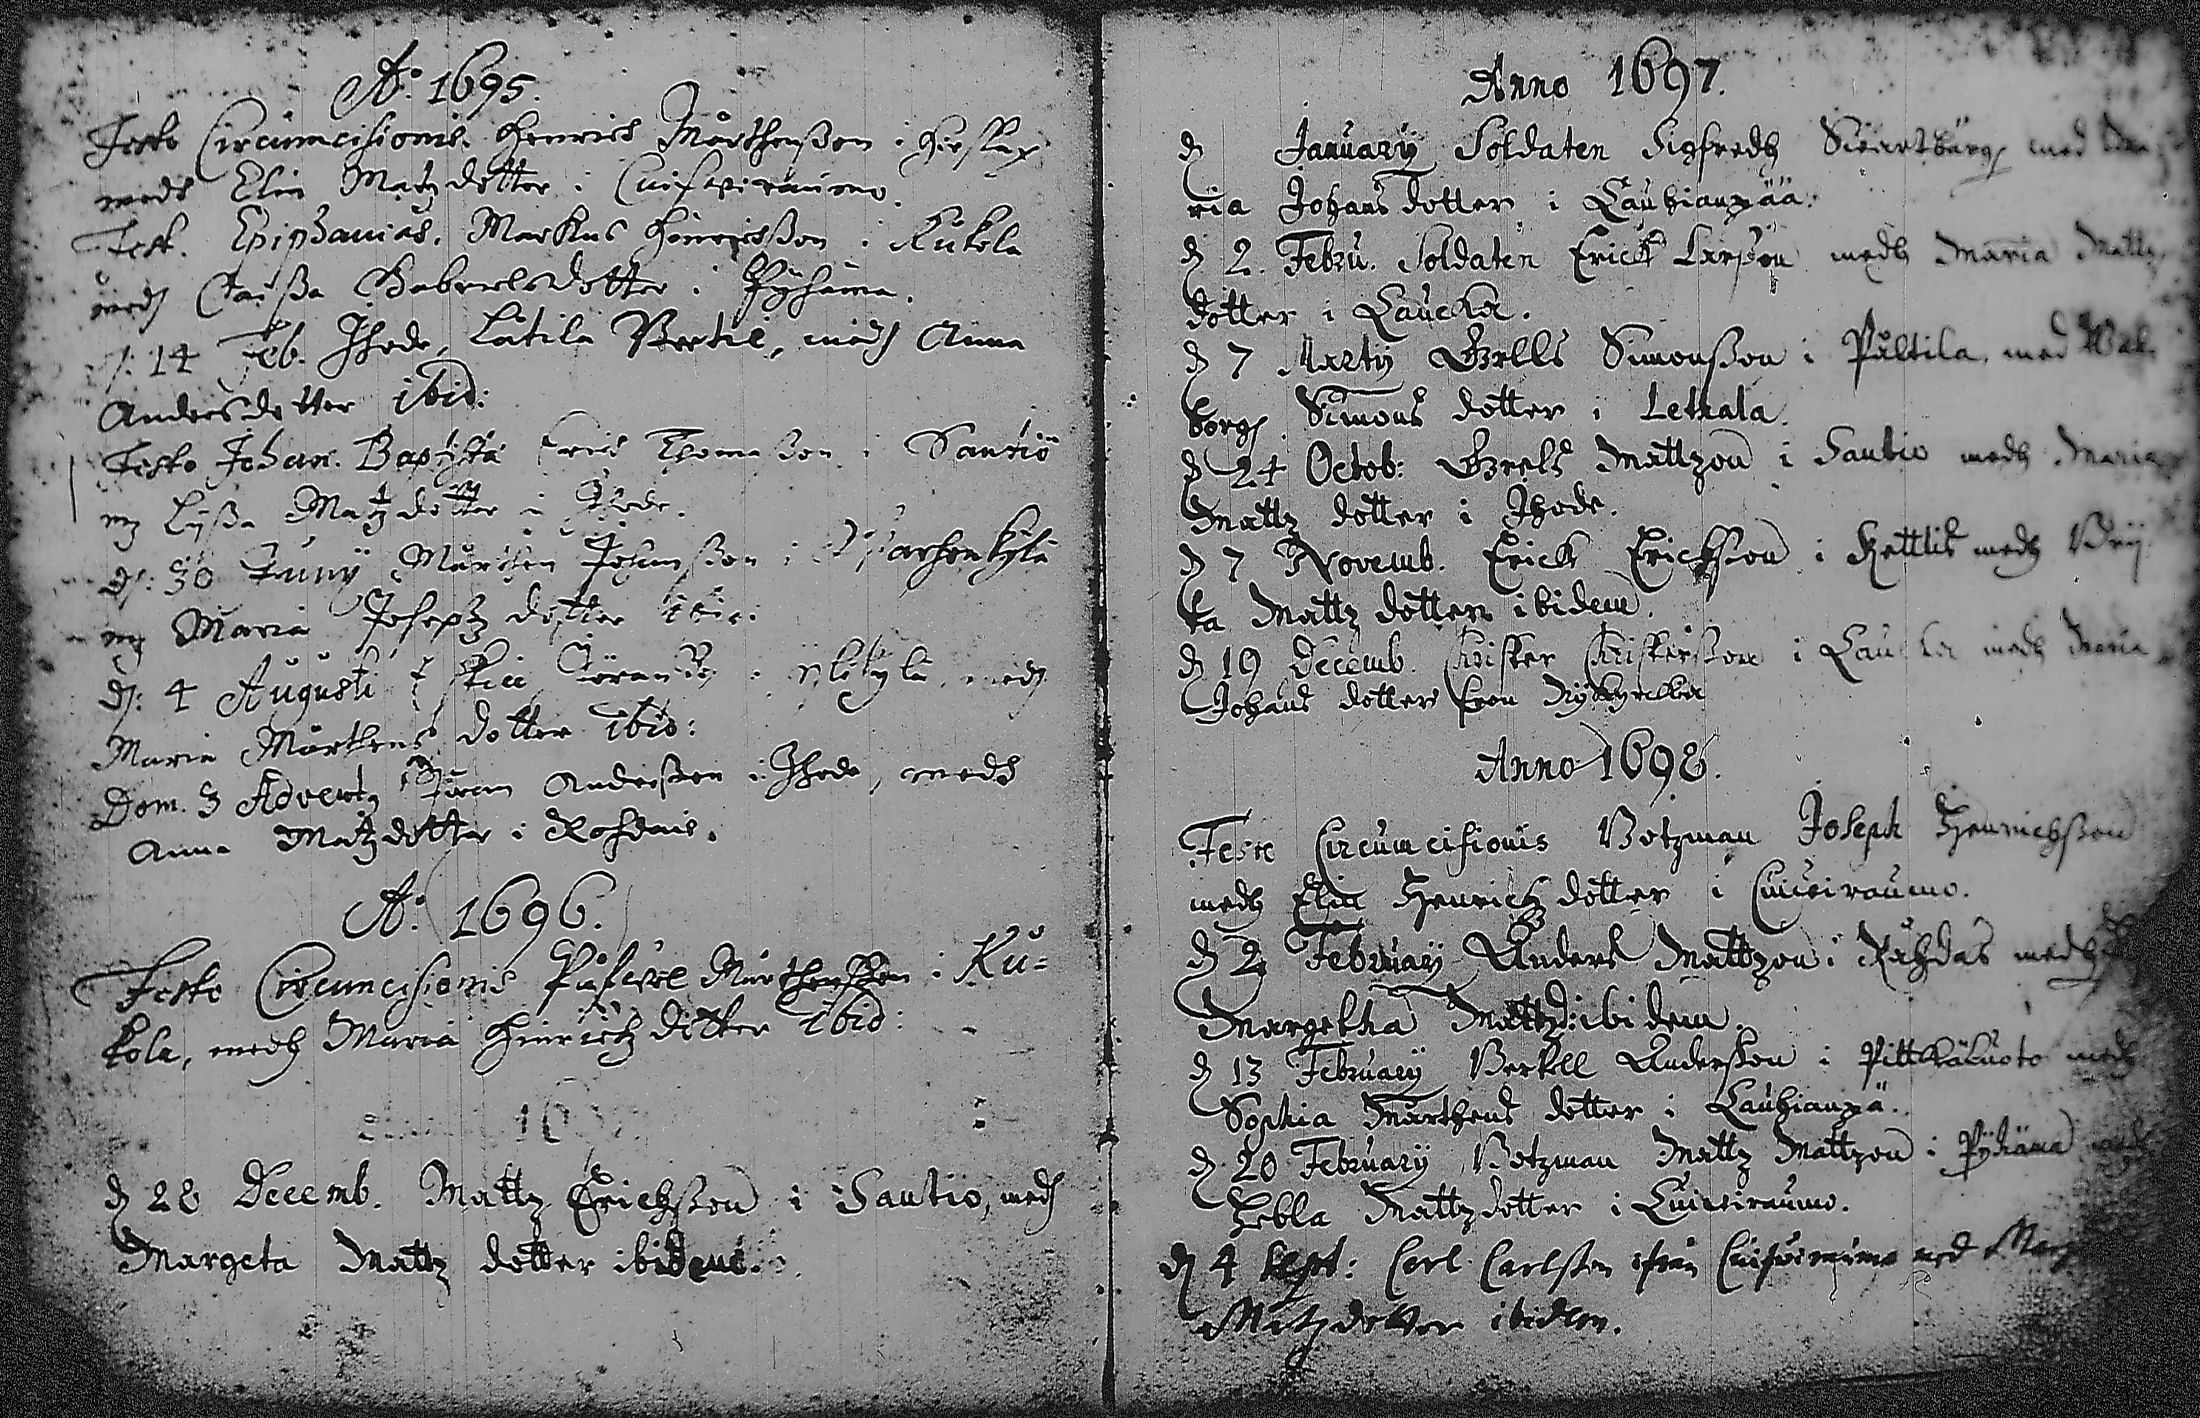 Ao. 1695.
Festo Circumcisionis. Henrich Mårthensson i
medh Elin Matzdotter i Cuifwiraumo.
Fest. Epiphanias. Markus Hinrichsson i Kukola
medh Gabrielsdotter i Pyhäma.
d: 14 Feb. Ihode, Latila Bertil, medh Anna
Andersdotter ibid:
Festo Johan. Baptistæ Erich Thomasson i Santiö
m Lijsa Matzdotter i Ihode.
d: 30 Junij Mårthen Johansson i
m Maria Josephz dotter ibid:
d: 4 Augusti Eskill i Ylikylä, medh
Maria Mårthens dotter ibid:
Dom. 3 Advent Jöran Andersson i Ihode, medh
Anna Matzdotter i Rohdais.
Ao. 1696.
Festo Circumcisionis Mårthensson i Ku=
kola, medh Maria Hinrichz dotter ibid:
16
d 28 Decemb. Mattz Erichsson i Santio, medh
Margeta Mattz dotter ibidem.
Anno 1697.
d Januarij Soldaten Sigfredh Swartbärg med Ma
ria Johans dotter i Lauhianpää.
d 2. Febru. Soldaten Erick Larsson medh Maria Mattz
dotter i Laucka.
d 7 Martij Grells Simonsson i Pältila, med Wal
borg Simons dotter i Letzala.
d 24 Octob: Grels Mattzon i Santio medh Maria
Mattz dotter i Ihode.
d 7 Novemb. Erick Erichsson i Kettlis medh Brij
ta Mattz dotter ibidem.
d 19 Decemb. Christer Christersson i Laucka medh Maria
Johans dotter från Nykyrckia
Anno 1698.
Feste Circumcisionis Botzman Joseph Henrichsson
medh Elin Henrichz dotter i Cuiviraumo.
d 2 Februarij Anders Mattzon i Råhdas medh
Margetha Mattzd: ibidem.
d 13 Februarij Bertill Andersson i Pittkäluoto medh
Sophia Mårthens dotter i Lauhianpä.
d 20 Februarij Botzman Mattz Mattzon i Pyhäma
Zebla Mattzdotter i Cuiviraumo.
d 4 Sept: Carl Carlsson ifrån Cuifwiraumo med
Matzdotter ibidem.